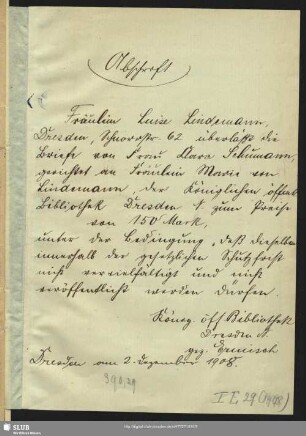 Abschrift
Fräulein Luise Lindemann,
Dresden, Schnorrstr. 62 überlässt die
Briefe von Frau Clara Schumann,
gerichtet an Fräulein Marie von
Lindemann, der Königlichen öffentl.
Bibliothek Dresden zum Preise
von 150 Mark,
unter der Bedingung, daß dieselben
innerhalb der gesetzlichen Schutzfrist
nicht vervielfältigt und nicht
veröffentlicht werden dürfen.
König. öff Bibliothek
Dresden
gez. Ermisch
Dresden am 2. Dezember 1908.
SLUB